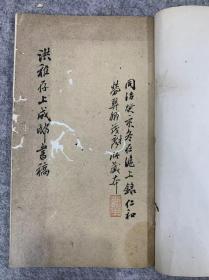 同治癸亥冬在滬上錄仁和
勞巽卿茂才所藏本
洪稚存上成邸書稿